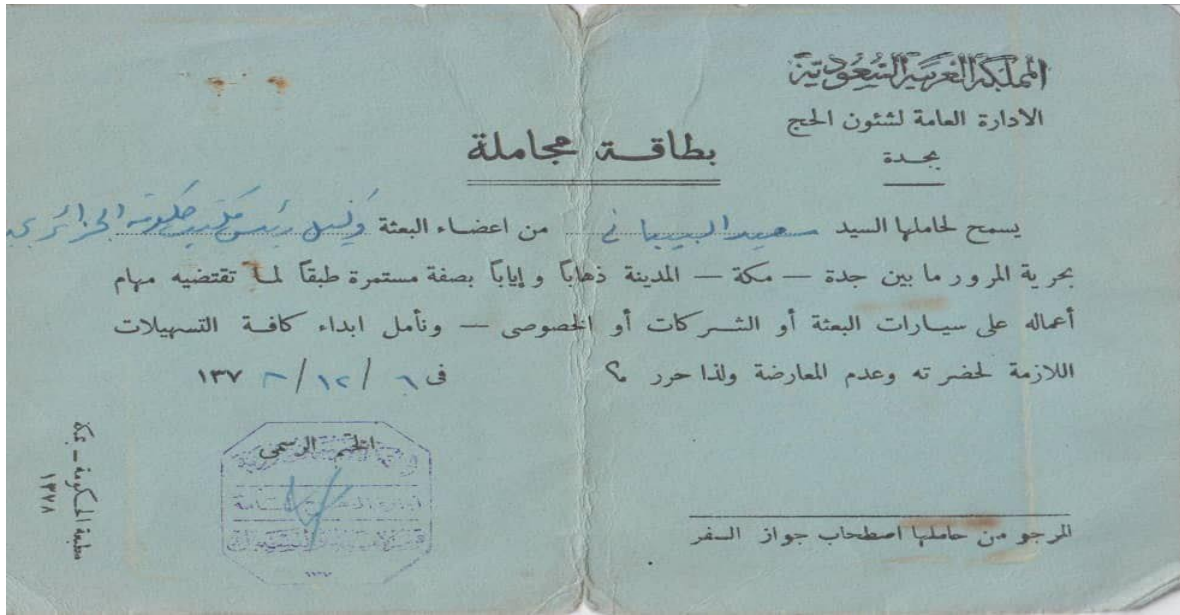 المملكة العربية السعودية
الادارة العامة لشئون الحج
بجدة
بطاقة مجاملة
يسمح لحاملها السيد سعيد من اعضاء البعثة وكيل رئيس مكتب حكومة الجزائر
بحرية المرور ما بين جدة — مكة — المدينة ذهاباً و إياباً بصفة مستمرة طبقاً لما تقتضيه مهام
أعماله على سيارات البعثة أو الشركات أو الخصوصى — ونأمل ابداء كافة التسهيلات
اللازمة لحضرته وعدم المعارضة ولذا حرر ؟ فى ٦ / ١٢ / ١٣٧٨
الختم الرسمى
المرجو من حاملها اصطحاب جواز السفر
مطبعة الحكومة — بمكة
١٣٧٨